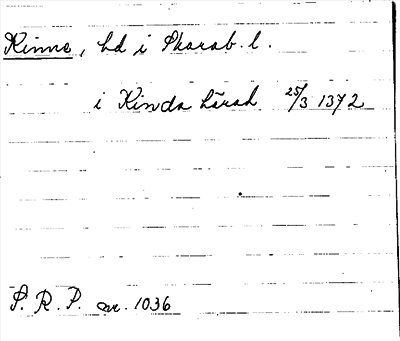 Kinne, hd i Skarab. l.
i Kinda härad 25/3 1372
S. R. P. nr. 1036